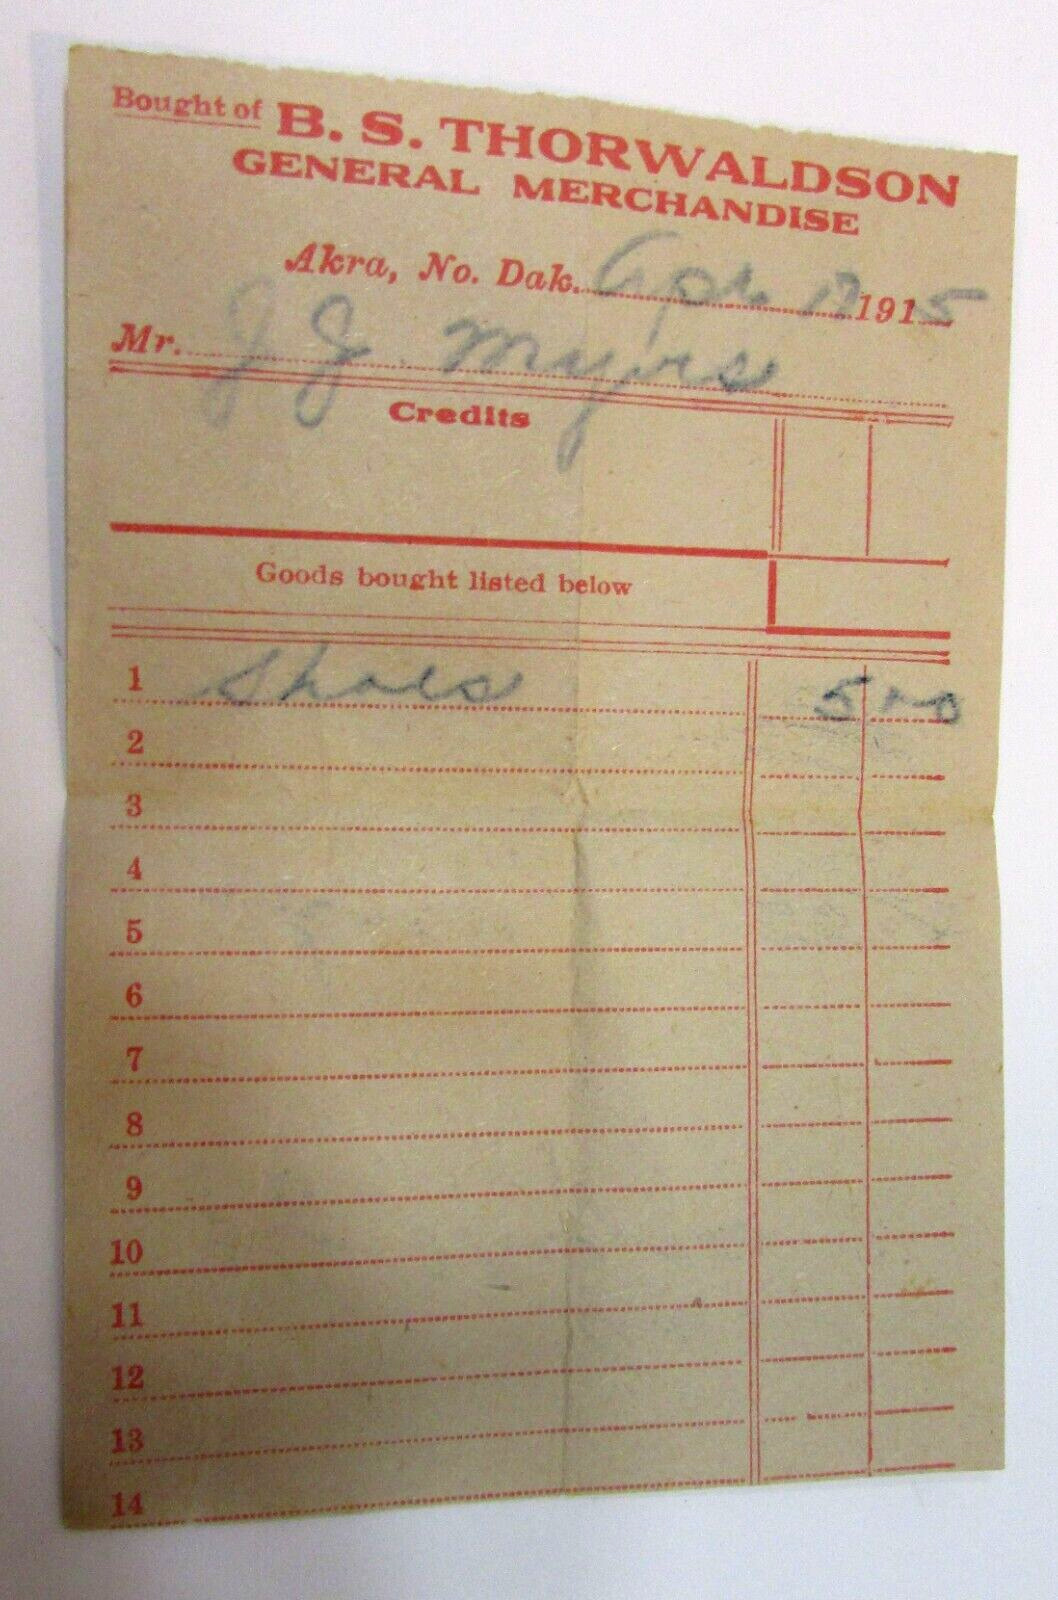 Bought of B. S. THORWALDSON
GENERAL MERCHANDISE
Akra, No. Dak. Apr 17 1915
Mr. J J Myers
Credits
Goods bought listed below
1 Shoes 5 00
2
3
4
5
6
7
8
9
10
11
12
13
14